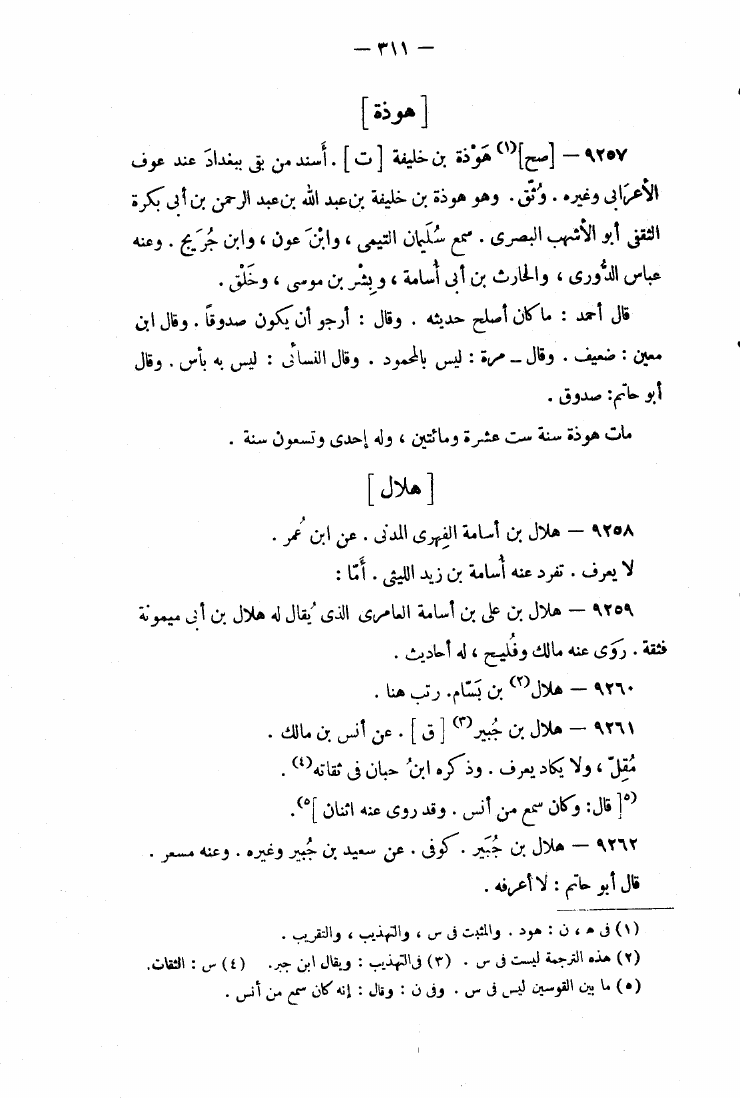 — ٣١١ —
[ هوذة ]
٩٢٥٧ — [صح](١) هَوْذة بن خليفة [ ت ] . أَسند من بقى ببغدادَ عند عوف
الأعرَابى وغيره . وُثّق . وهو هوذة بن خليفة بن عبد الله بن عبد الرحمن بن أبى بكرة
الثقفى أبو الأشهب البصرى . سمع سُلَيمان التيمى ، وابْن عون ، وابن جُرَيج . وعنه
عباس الدُّورى ، والحارث بن أبى أُسامة ، وبِشْر بن موسى ، وخَلْق .
قال أحمد : ما كان أصلح حديثه . وقال : أرجو أن يكون صدوقاً . وقال ابن
معين : ضعيف . وقال ــ مرة : ليس بالمحمود . وقال النسائى : ليس به بأس . وقال
أبو حاتم : صدوق .
مات هوذة سنة ست عشرة ومائتين ، وله إحدى وتسعون سنة .
[ هلال ]
٩٢٥٨ — هلال بن أسامة الفِهرى المدنى . عن ابن عُمر .
لا يعرف . تفرد عنه أُسامة بن زيد الليثى . أَمّا :
٩٢٥٩ — هلال بن على بن أسامة العامرى الذى يُقال له هلال بن أبى ميمونة
فثقة . رَوَى عنه مالك وفُليح ، له أحاديث .
٩٢٦٠ — هلال(٢) بن بَسّام. رتب هنا .
٩٢٦١ — هلال بن جُبير(٣) [ ق ] . عن أنس بن مالك .
مُقِلّ ، ولا يكاد يعرف . وذكره ابنُ حبان فى ثقاته(٤) .
(٥[ قال : وكان سمع من أنس . وقد روى عنه اثنان ]٥).
٩٢٦٢ — هلال بن جُبَير . كوفى . عن سعيد بن جُبير وغيره . وعنه مسعر .
قال أبو حاتم : لا أعرفه .
(١) فى هـ ، ن : هود . والمثبت فى س ، والتهذيب ، والتقريب .
(٢) هذه الترجمة ليست فى س . (٣) فى التهذيب : ويقال ابن جبر. (٤) س : الثقات.
(٥) ما بين القوسين ليس فى س . وفى ن : وقال : إنه كان سمع من أنس .